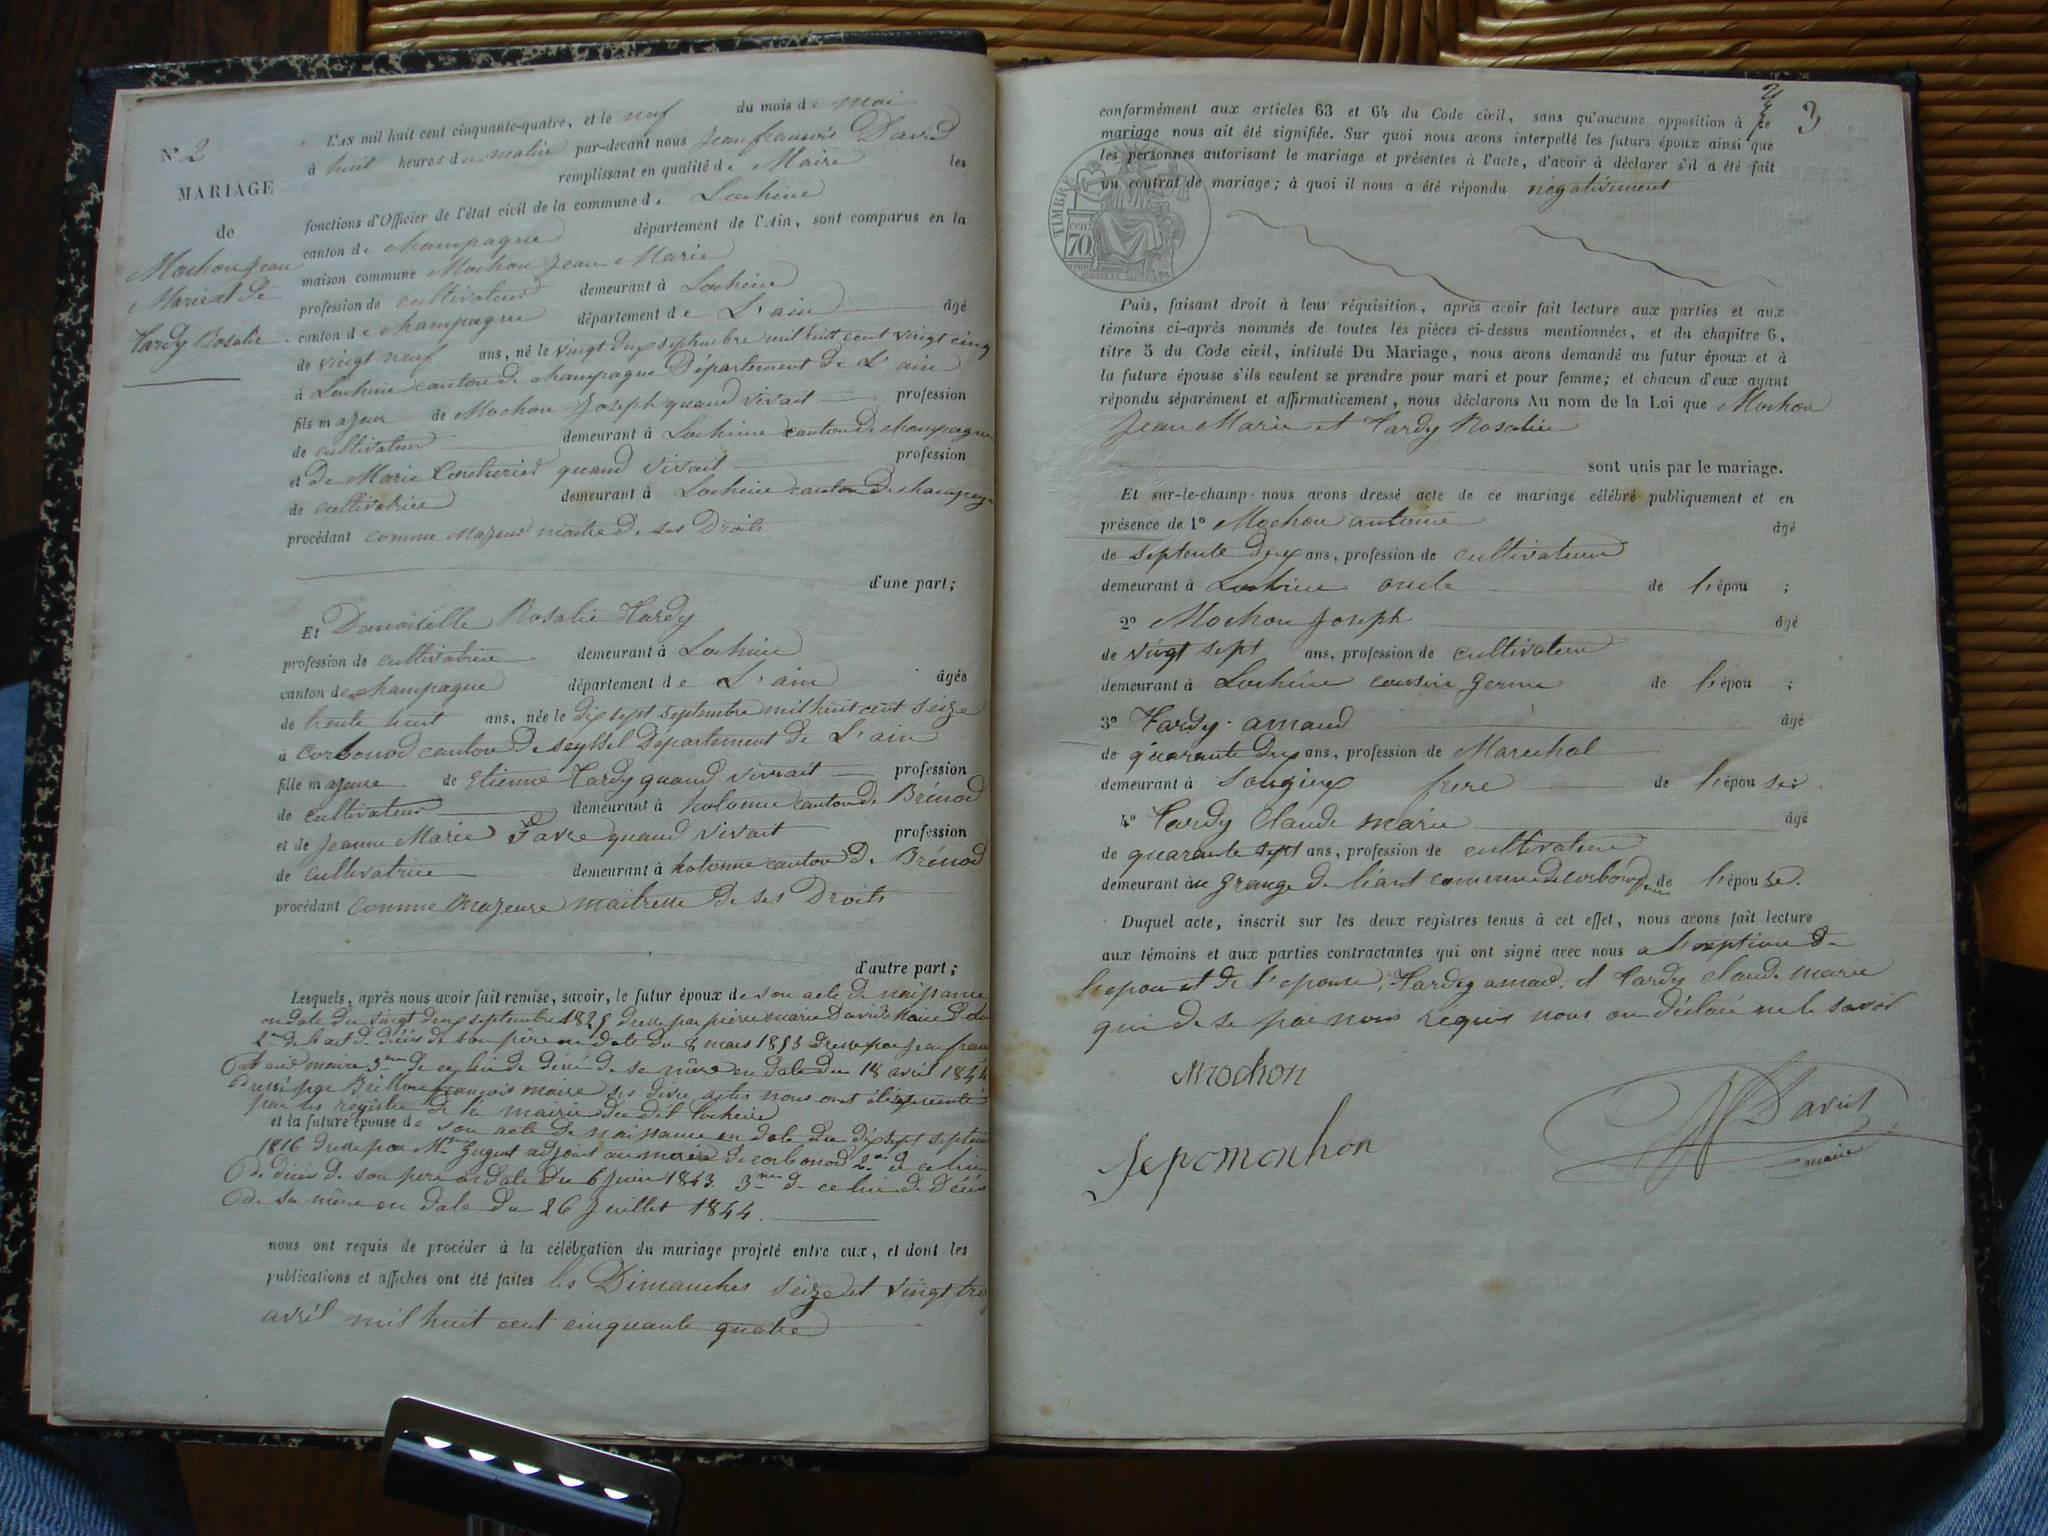 N° 2
MARIAGE
de
Mochon Jean
Marie et de
Tardy Rosalie
L'AN mil huit cent cinquante-quatre, et le neuf du mois de mai
à huit heures du matin par-devant nous Jean françois David
remplissant en qualité de Maire les
fonctions d'Officier de l'état civil de la commune de Lochieu
canton de champagne département de l'Ain, sont comparus en la
maison commune Mochon Jean Marie
profession de cultivateur demeurant à Lochieu
canton de champagne département de L'ain âgé
de vingt neuf ans, né le vingt deux septembre mil huit cent vingt cinq
à Lochieu canton de champagne Département de L'ain
fils majeur de Mochon Joseph quand vivait profession
de cultivateur demeurant à Lochieu canton de champagne
et de Marie quand vivait profession
de cultivatrice demeurant à Lochieu canton de champagne
procédant comme Majeur maitre de ses Droits
d'une part;
Et Demoiselle Rosalie Tardy
profession de cultivatrice demeurant à Lochieu
canton de champagne département de L'ain âgée
de trente huit ans, née le dix sept septembre mil huit cent seize
à corbonod canton de seyssel Département de L'ain
fille majeure de Etienne Tardy quand vivait profession
de cultivateur demeurant à hotonne canton de Brénod
et de Jeanne Marie Favre quand vivait profession
de cultivatrice demeurant à hotonne canton de Brénod
procédant comme Majeure maitresse de ses Droits
d'autre part;
Lesquels, après nous avoir fait remise, savoir, le futur époux de son acte de naissance
en date du vingt deux septembre 1825 dressé par pierre marie David Maire
2me de l'act de décès de son père en date du 8 mars 1853 dressé par Jean fran
David maire 3me de celui de décès de sa mère en date du 18 avril 1844
dressé par françois maire ses divers actes nous ont été présentés
par les registre de la mairie du dit Lochieu
et la future épouse de son acte de naissance en date du dix sept septem
1816 dressé par Mr adjoint au maire de corbonod 2me de celui
de décès de son père en date du 6 juin 1843. 3me de celui de décès
de sa mère en date du 26 Juillet 1844.
nous ont requis de procéder à la célébration du mariage projeté entre eux, et dont les
publications et affiches ont été faites les Dimanches seize et vingt trois
avril mil huit cent cinquante quatre
3
conformément aux articles 63 et 64 du Code civil, sans qu'aucune opposition à ce
mariage nous ait été signifiée. Sur quoi nous avons interpellé les futurs époux ainsi que
les personnes autorisant le mariage et présentes à l'acte, d'avoir à déclarer s'il a été fait
un contrat de mariage; à quoi il nous a été répondu négativement
TIMBRE
70
Puis, faisant droit à leur réquisition, après avoir fait lecture aux parties et aux
témoins ci-après nommés de toutes les pièces ci-dessus mentionnées, et du chapitre 6,
titre 5 du Code civil, intitulé Du Mariage, nous avons demandé au futur époux et à
la future épouse s'ils veulent se prendre pour mari et pour femme; et chacun d'eux ayant
répondu séparément et affirmativement, nous déclarons Au nom de la Loi que Mochon
Jean Marie et Tardy Rosalie
sont unis par le mariage.
Et sur-le-champ nous avons dressé acte de ce mariage célébré publiquement et en
présence de 1° Mochon antoine âgé
de septente deux ans, profession de cultivateur
demeurant à Lochieu oncle de l'épou ;
2° Mochon Joseph âgé
de vingt sept ans, profession de cultivateur
demeurant à Lochieu cousin germe de l'épou ;
3° Tardy amaud âgé
de quarante deux ans, profession de Marechal
demeurant à Songieux frere de l'épou se;
4° Tardy Claude marie âgé
de quarante sept ans, profession de cultivateur
demeurant à grange de commune de corbonod de l'épouse.
Duquel acte, inscrit sur les deux registres tenus à cet effet, nous avons fait lecture
aux témoins et aux parties contractantes qui ont signé avec nous a l'exeption de
l'epou et de l'epouse, Tardy amaud, et Tardy claude marie
qui de se par nous requis nous on déclaré ne le savoir
Mochon
David
maire